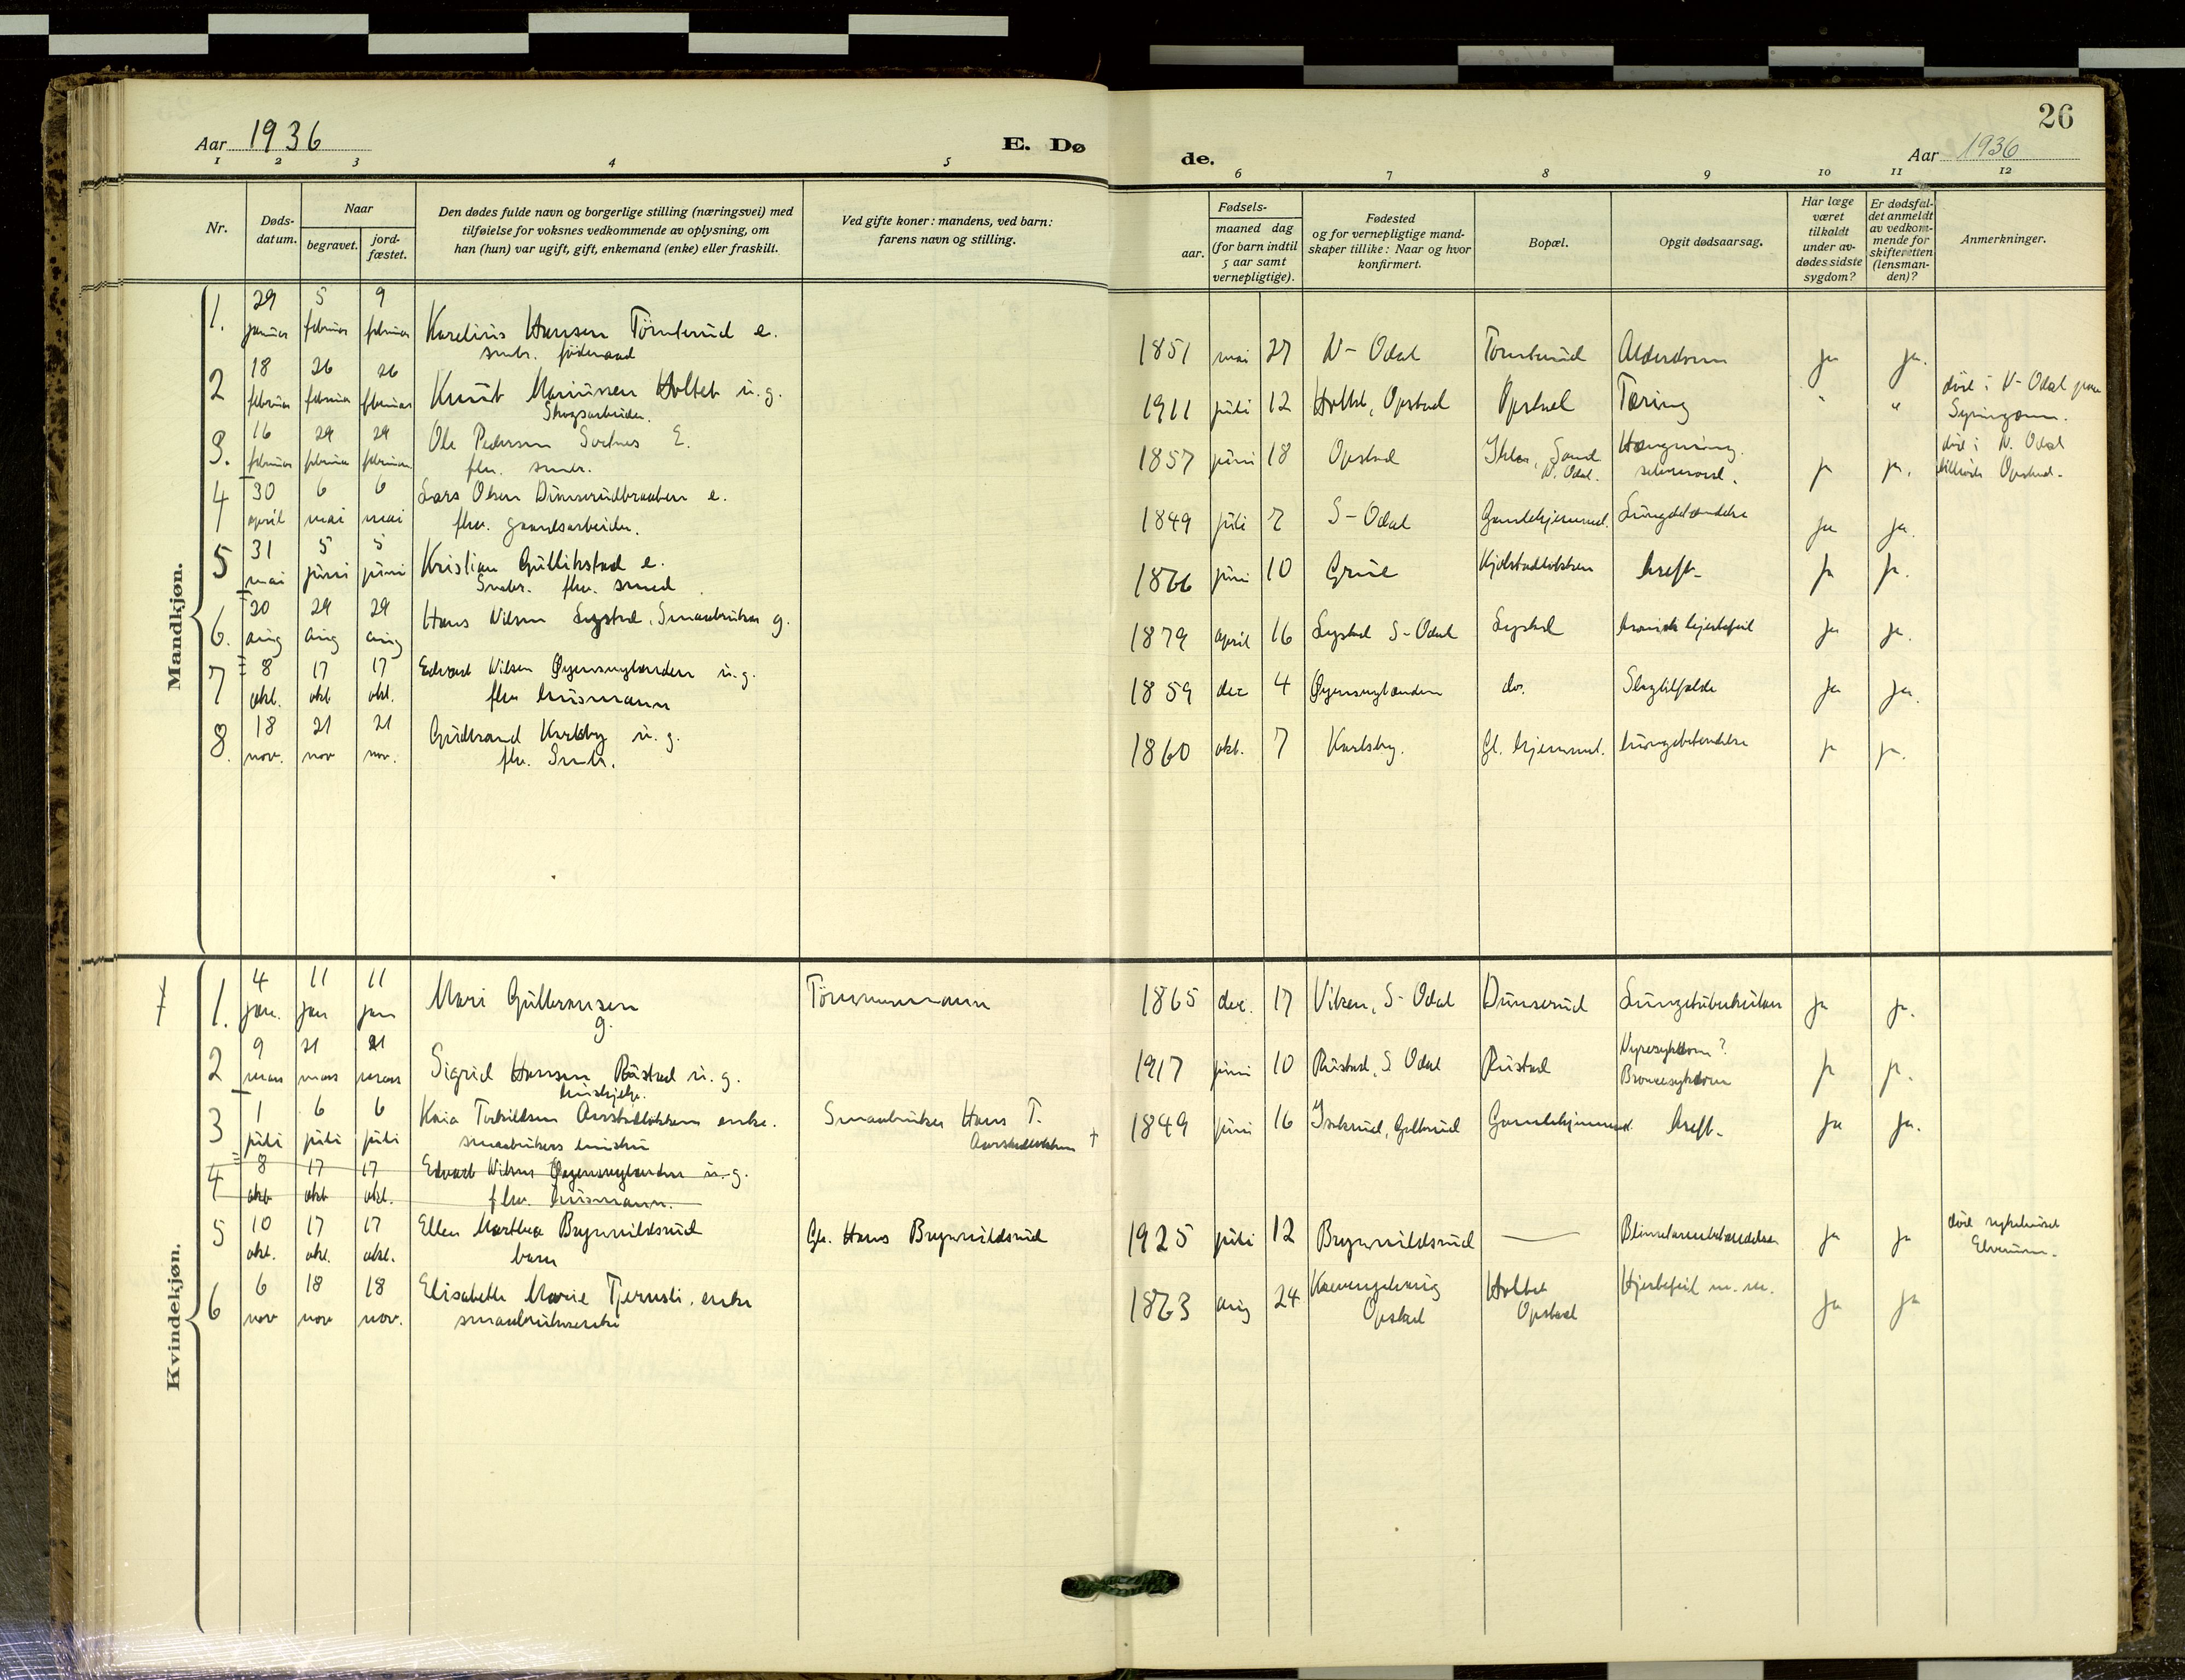 26
Aar 1936
E. Dø
de.
Aar 1936
1 2 3 4 5 6 7 8 9 10 11 12
Nr.
Døds-
datum.
Naar
begravet.
jord-
fæstet.
Den dødes fulde navn og borgerlige stilling (næringsvei) med
tilføielse for voksnes vedkommende av oplysning, om
han (hun) var ugift, gift, enkemand (enke) eller fraskilt.
Ved gifte koner: mandens, ved barn:
farens navn og stilling.
Fødsels-
aar.
maaned dag
(for barn indtil
5 aar samt
vernepligtige).
Fødested
og for vernepligtige mand-
skaper tillike: Naar og hvor
konfirmert.
Bopæl.
Opgit dødsaarsag.
Har læge
været
tilkaldt
under av-
dødes sidste
sygdom?
Er dødsfal-
det anmeldt
av vedkom-
mende for
skifteretten
(lensman-
den)?
Anmerkninger.
Mandkjøn.
1. 29 5 9
januar februar februar Karelius Hansen Törnterud e.
smbr. föderaad
1851 mai 27 N-Odal Törnterud Alderdom ja ja.
2 18 26 26
februar februar februar Knut Mariussen Holtet u.g.
Skogsarbeider.
1911 juli 12 Holtet, Opstad Opstad Tæring " "
död i N-Odal paa
3. 16 29 29 Ole Pedersen E.
februar februar februar flw. smbr.
1857 juni 18 Opstad Sand Hængning
N. Odal. selvmord. ja ja.
död i N. Odal
tilhörte Opstad.
4 30 6 6 Lars Olsen Dunserudbraaten e.
april mai mai flw. gaardsarbeider.
1849 juli 7 S-Odal Gamlehjemmet. Lungebetændelse ja ja.
5 31 5 5 Kristian Gullikstad e.
mai juni juni Smbr. flw. smed
1866 juni 10 Grue Kjölstadlökken kreft ja ja.
6. 20 29 29 Hans Nilsen Lystad, Smaabruker g.
aug aug aug
1879 april 16 Lystad S-Odal Lystad kronisk hjertefeil ja ja.
7 8 17 17 Edvard Nilsen Øyensmylanden u.g.
okt. okt okt. flw husmann
1859 dec 4 Øyensmylanden do. Slagtilfælde ja ja.
8. 18 21 21 Gudbrand Karlsby u.g.
nov. nov nov. flw. Smbr.
1860 okt. 7 Karlsby. Gl. hjemmet. lungebetendelse ja ja.
Kvindekjøn.
1. 4 11 11 Mari Gulbransen Tömmermann
jan. jan jan g.
1865 dec. 17 Viken, S-Odal Dunserud Lungetuberkulose ja ja.
2 9 21 21 Sigrid Hansen Rustad u.g.
mars mars mars hushjelp.
1917 juni 10 Rustad, S Odal Rustad Nyresykdom?
Broncesykdom ja ja.
3 1 6 6 Kaia Torkildsen Aurstadlökken enke. Smaabruker Hans T.
juli juli juli smaabrukers hustru Aurstadlökken +
1849 juni 16 Gamlehjemmet. kreft ja ja.
4 8 17 17 Edvard Nilsen Øyensmylanden u.g.
okt okt okt. flw. husmann.
5 10 17 17 Ellen Marthea Brynnildsrud Gbr. Hans Brynnildsrud
okt. okt. okt. barn
1925 juli 12 Brynnildsrud — Blindtarmbetændelse ja ja
död sykehuset
Elverum.
6 6 18 18 Elisabeth Marie Tjernsli, enke
nov nov nov. smaabrukerenke
1863 aug 24 Opstad Holtet
Opstad Hjertefeil m.m. ja ja